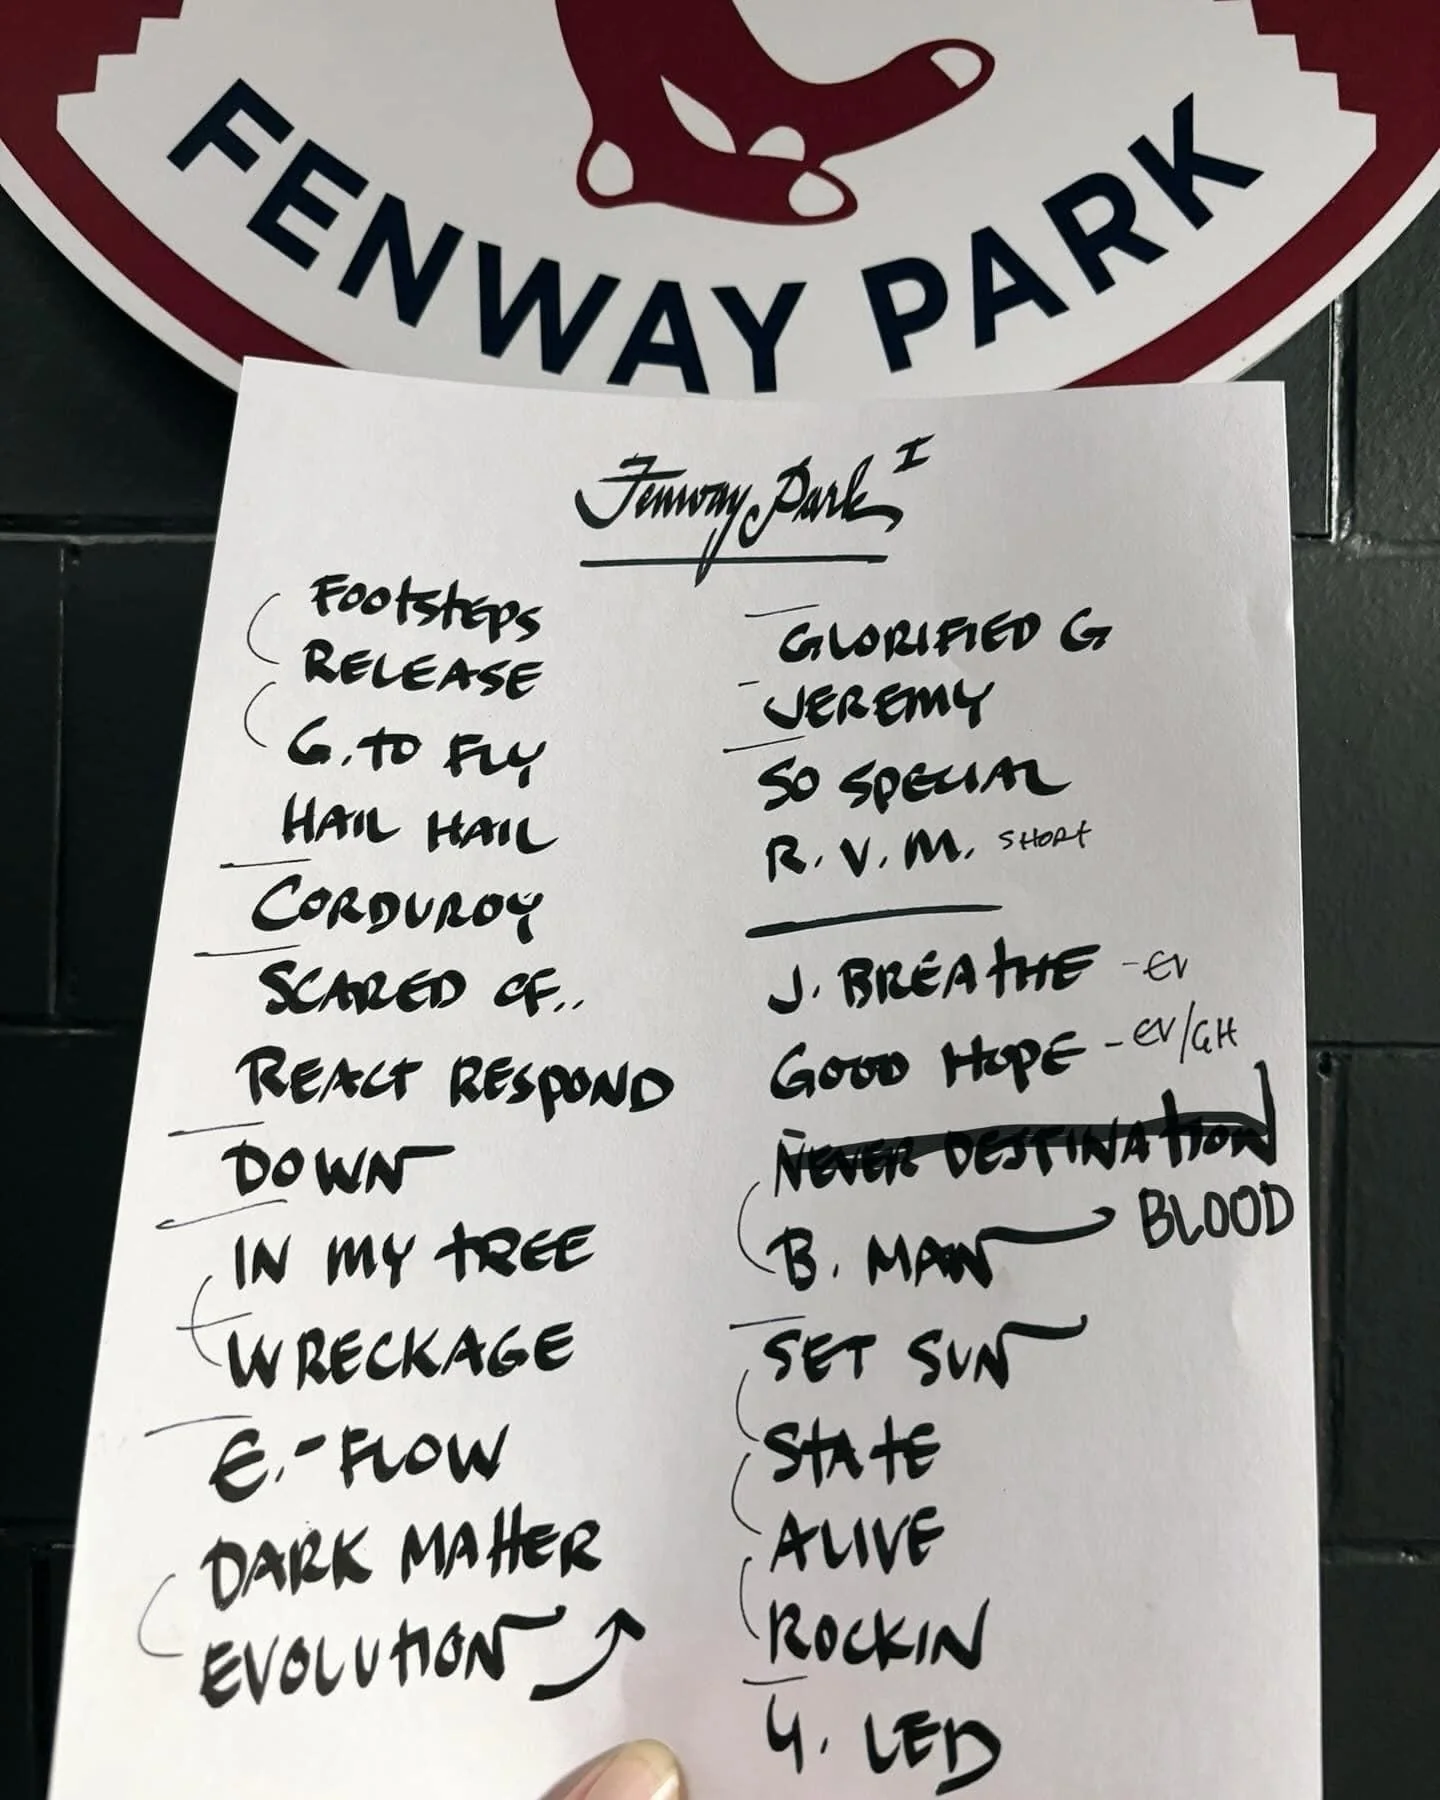 FENWAY PARK
Fenway Park I
FOOtstEPS
RELEASE
G. TO FLY
HAIL HAIL
CORDUROY
SCARED OF..
REACT RESPOND
DOWN
IN MY TREE
WRECKAGE
E.-FLOW
DARK MAttER
EVOLUTION
GLORIFIED G
JEREMY
SO SPECIAL
R.V.M. SHORT
J. BREATHE -EV
GOOD HOPE -EV/GH
NEVER DESTINATION
B. MAN BLOOD
SET SUN
STATE
ALIVE
ROCKIN
Y. LED